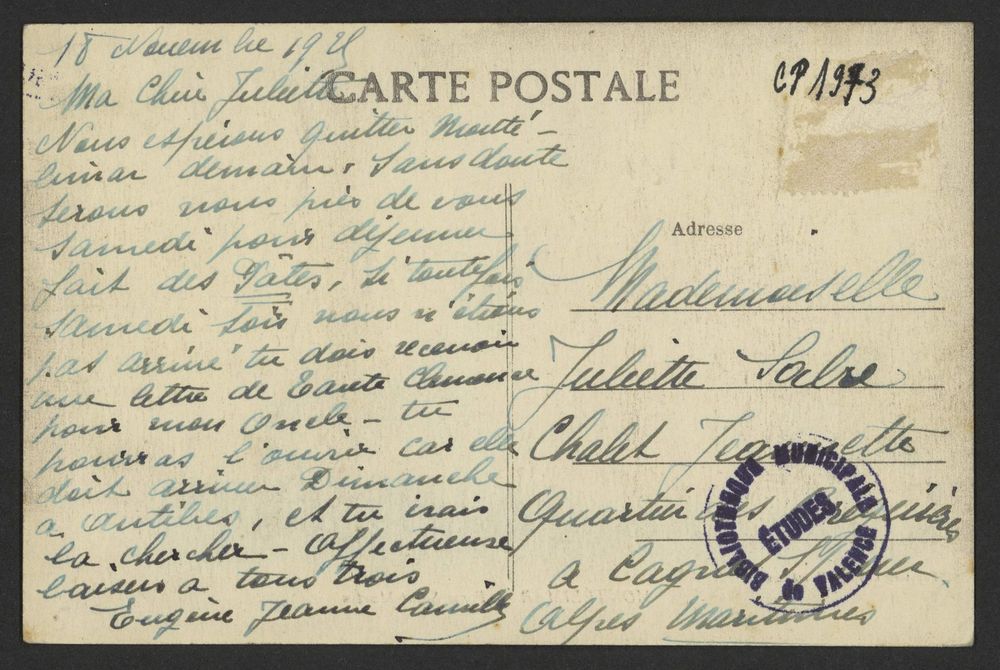 18 Novembre 1925
Ma Chère Juliette
CARTE POSTALE
CP 1973
Nous espérons quitter Monté-
limar demain. Sans doute
serons nous près de vous
Samedi pour déjeuner
fait des Pâtes, si toutefois
Samedi soir nous n'étions
pas arrivé tu dois recevoir
une lettre de Tante Clemence
pour mon Oncle - tu
pourras l'ouvrir car elle
doit arriver Dimanche
a Antibes, et tu irais
la chercher - Affectueux
baisers a tous trois
Eugène Jeanne Camille
Adresse
Mademoiselle
Juliette Sabre
Chalet Jeannette
Quartier des
a Cagnes S/Mer
Alpes Maritimes
BIBLIOTHEQUE MUNICIPALE
ÉTUDES
de VALENCE